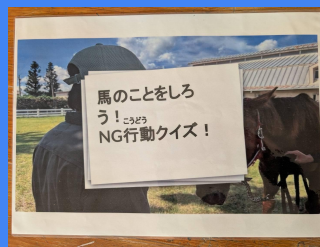 馬のことをしろ
う！
こうどう
NG行動クイズ！